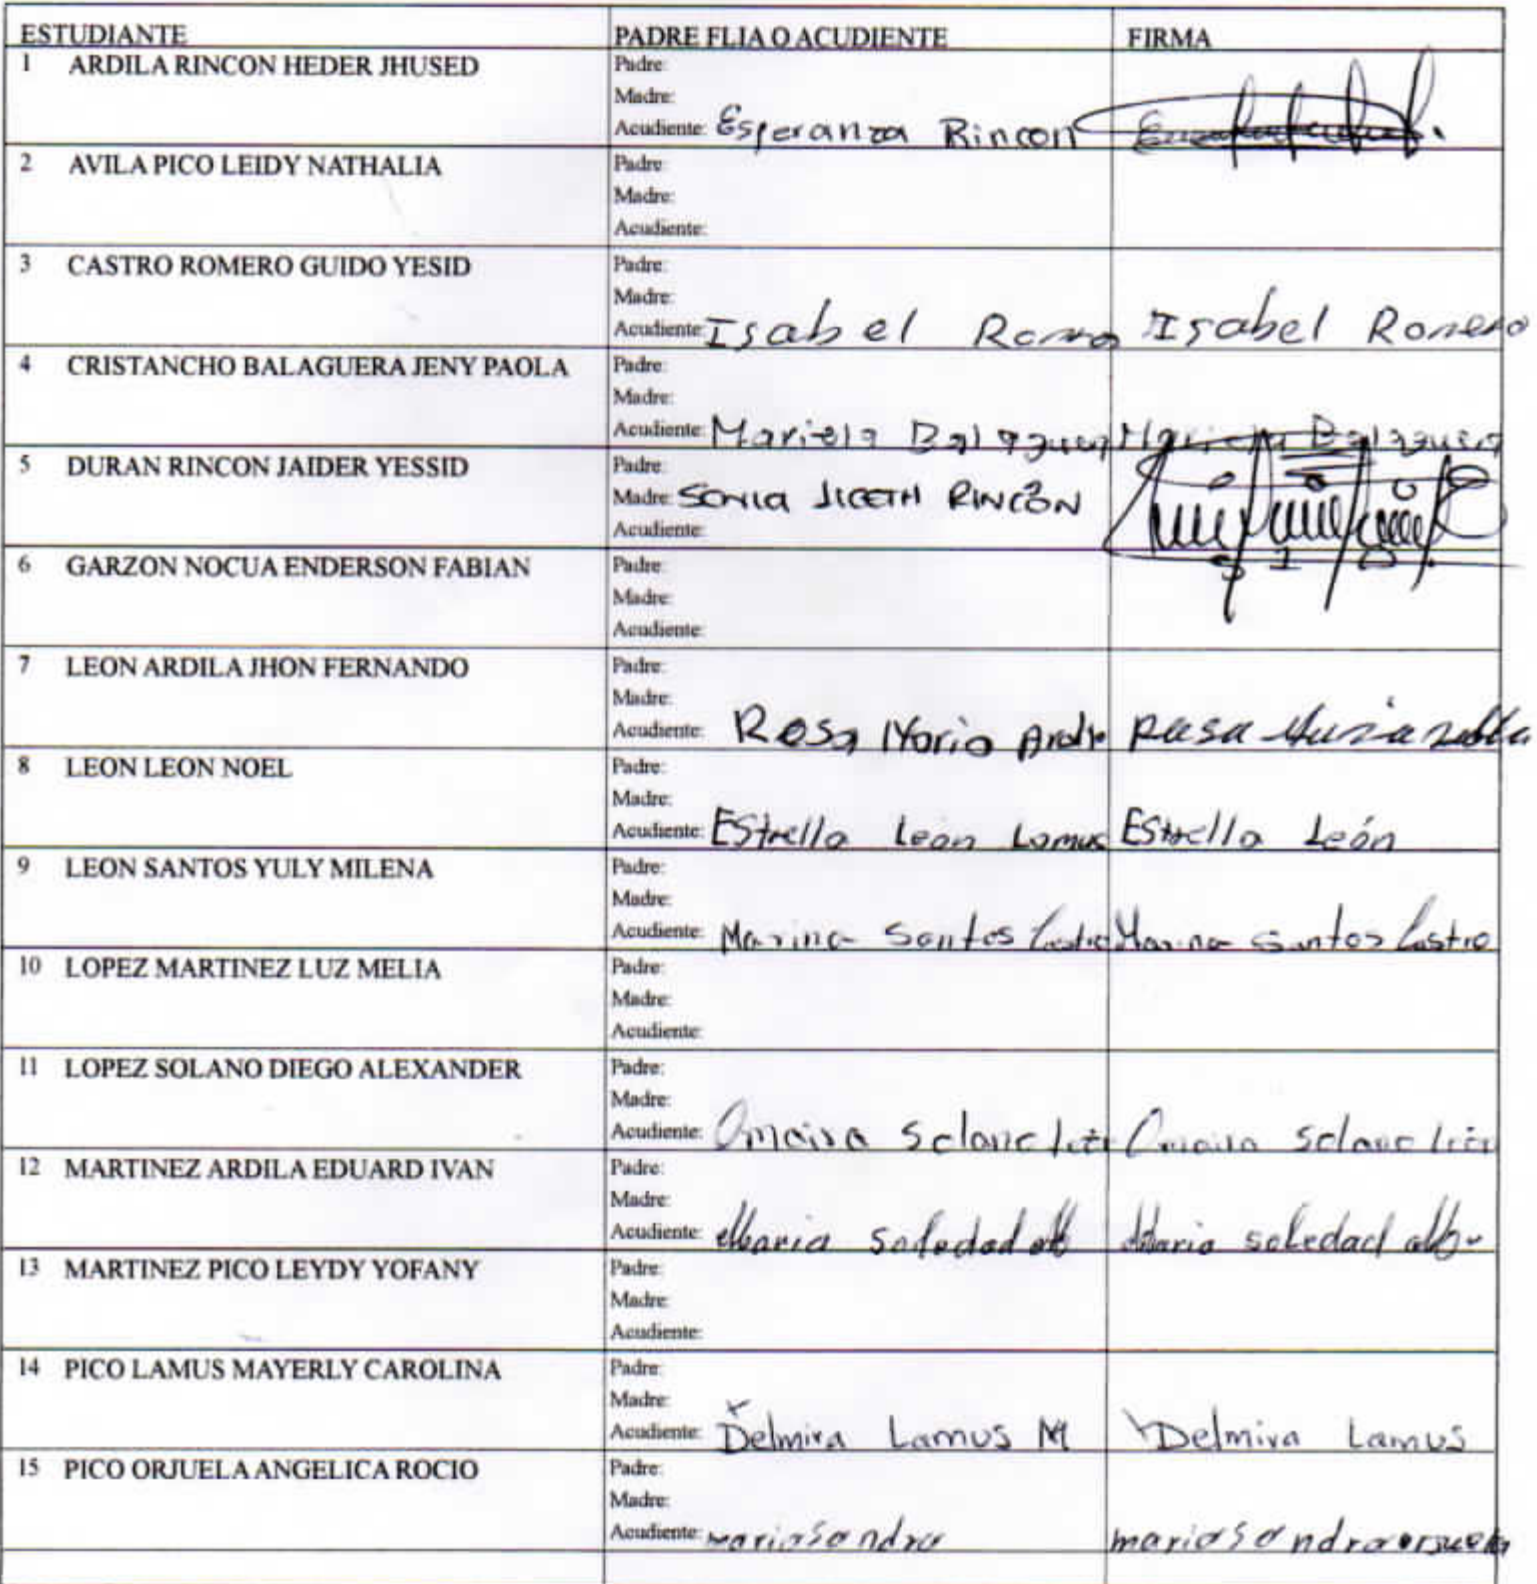 ESTUDIANTE PADRE FLIA O ACUDIENTE FIRMA
1 ARDILA RINCON HEDER JHUSED Padre:
Madre:
Acudiente: Esperanza Rincon
2 AVILA PICO LEIDY NATHALIA Padre:
Madre:
Acudiente:
3 CASTRO ROMERO GUIDO YESID Padre:
Madre:
Acudiente: Isabel Romero Isabel Romero
4 CRISTANCHO BALAGUERA JENY PAOLA Padre:
Madre:
Acudiente: Mariela Balaguera Mariela Balaguera
5 DURAN RINCON JAIDER YESSID Padre:
Madre: SONIA JICETH RINCÓN
Acudiente:
6 GARZON NOCUA ENDERSON FABIAN Padre:
Madre:
Acudiente:
7 LEON ARDILA JHON FERNANDO Padre:
Madre:
Acudiente: Rosa Maria Ardila Rosa Maria
8 LEON LEON NOEL Padre:
Madre:
Acudiente: EStrella Leon Lamus EStrella León
9 LEON SANTOS YULY MILENA Padre:
Madre:
Acudiente: Marina Santos Castro Marina Santos Castro
10 LOPEZ MARTINEZ LUZ MELIA Padre:
Madre:
Acudiente:
11 LOPEZ SOLANO DIEGO ALEXANDER Padre:
Madre:
Acudiente: Omaira Solano León Omaira Solano León
12 MARTINEZ ARDILA EDUARD IVAN Padre:
Madre:
Acudiente: Maria Soledad Maria soledad
13 MARTINEZ PICO LEYDY YOFANY Padre:
Madre:
Acudiente:
14 PICO LAMUS MAYERLY CAROLINA Padre:
Madre:
Acudiente: Delmira Lamus M Delmira Lamus
15 PICO ORJUELA ANGELICA ROCIO Padre:
Madre:
Acudiente: maria Sandra maria Sandra orjuela